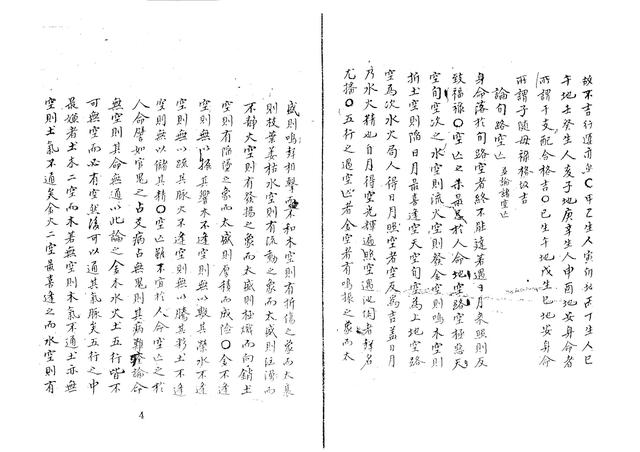 故不吉行運亦然〇甲乙生人寅卯地丙丁生人巳
午地壬癸生人亥子地庚辛生人申酉地安身命者
所謂干支配合格吉〇己生午地戊生巳地安身命
所謂子隨母祿格故吉
論旬路空亡 五論諸空亡
身命落於旬路空者終不能達若遇日月來照則反
致福祿〇空亡之来最忌於人命地空路空極惡天
空旬空次之水空則流火空則發金空則鳴木空則
折土空則陷日月最喜逢空天空旬空為上地空路
空為次水火局人得日月照空者空反為吉蓋日月
乃水火精也日月得空光輝遍照空過池閑者封名
尤播〇五行之遇空亡者金空者有鳴振之象而太
盛則鳴對相擊而不和木空則有折傷之象而太衰
則枝葉萎枯水空則有流動之象而太盛則汪漢而
不靜火空則有發揚之象而太盛則極熾而向銷土
空則有陷墮之象而太盛則厚積而成險〇金不逢
空則無以振其響木不逢空則無以敷其榮水不逢
空則無以疏其脈火不逢空則無以騰其彩土不逢
空則無以儲其精〇空亡雖不宜於人命空亡之於
人命譬如官鬼之占爻病占無鬼則其病難論命
無空則其命無通以此論之金木水火土五行皆不
可無空而必有空然後可以通其氣脈矣五行之中
最嫌者土木二空而木若無空則木氣不通土亦無
空則土氣不通矣金火二空最喜逢之而水空則有
4